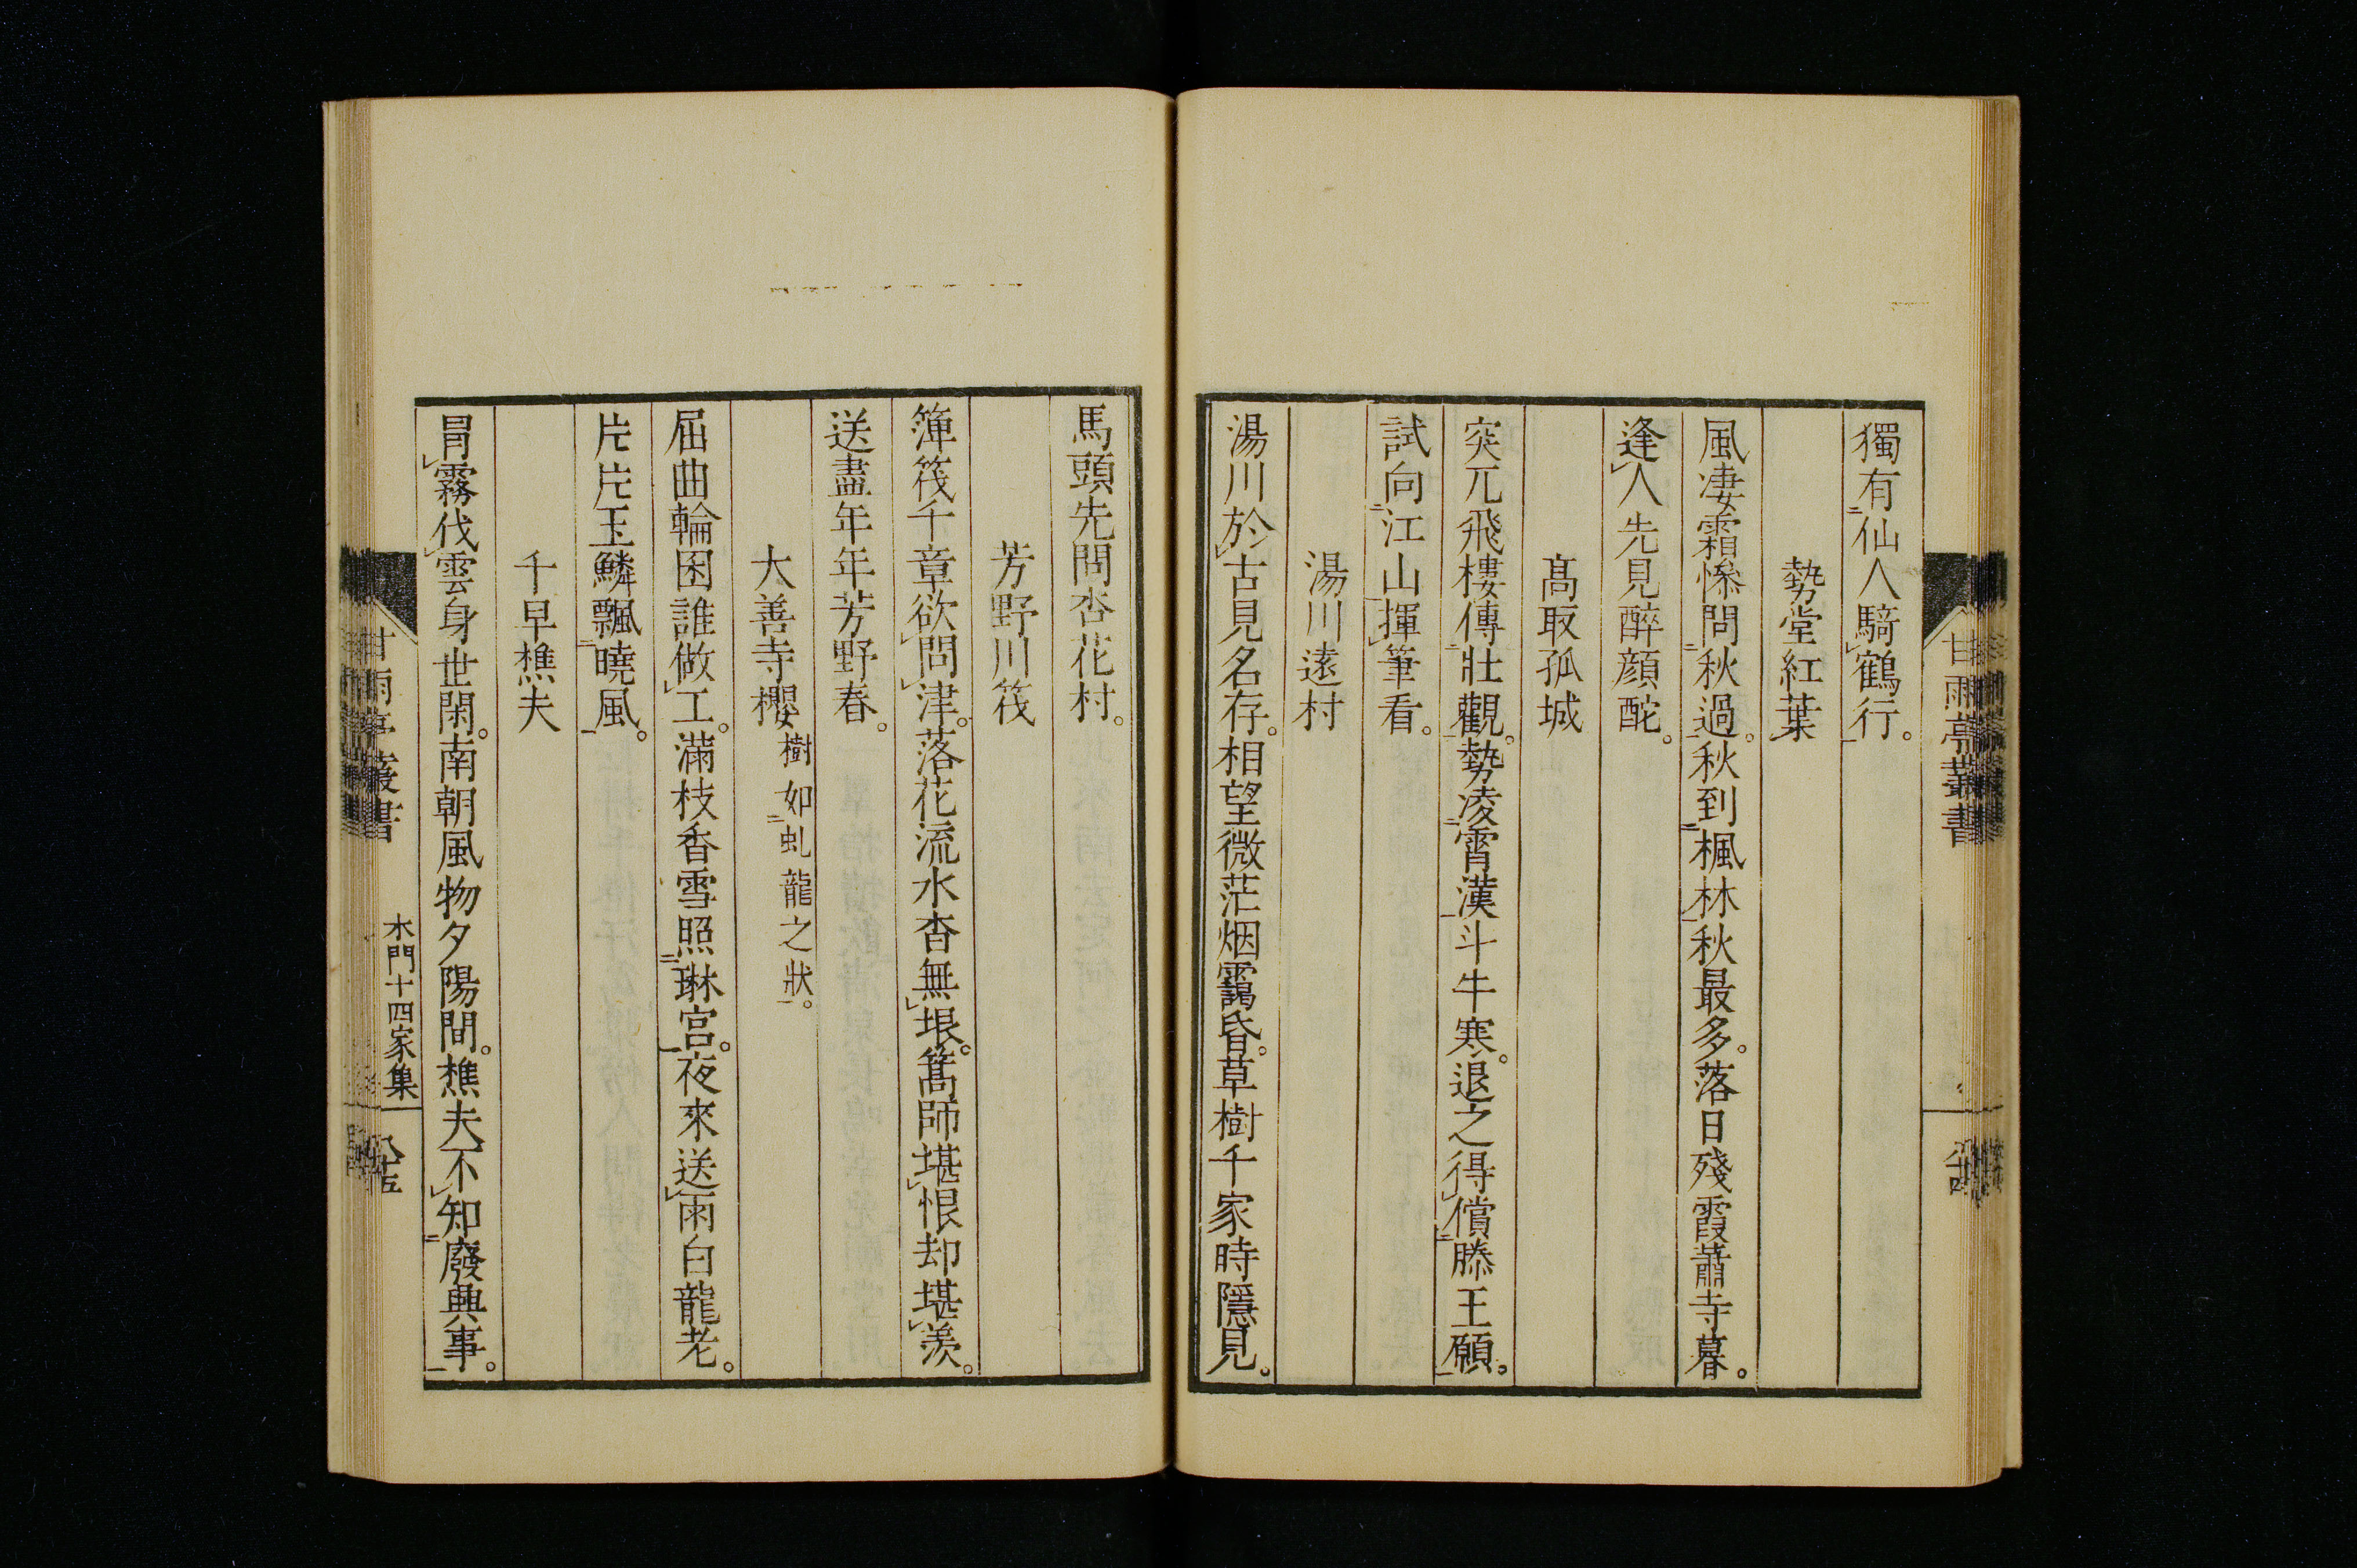 獨有仙人騎鶴行。
勢堂紅葉
風凄霜慘問秋過。秋到楓林秋最多。落日殘霞蕭寺暮。
逢人先見醉顔酡。
髙取孤城
突兀飛樓傳壯觀。勢凌霄漢斗牛寒。退之得償滕王願。
試向江山揮筆看。
湯川遠村
湯川於古見名存。相望微茫烟靄昏。草樹千家時隱見。
馬頭先問杏花村。
芳野川筏
簰筏千章欲問津。落花流水杳無垠。篙師堪恨却堪羨。
送盡年年芳野春。
大善寺櫻樹如虬龍之狀。
屈曲輪囷誰倣工。滿枝香雪照琳宮。夜來送雨白龍老。
片片玉鱗飄曉風。
千早樵夫
冐霧伐雲身世閑。南朝風物夕陽間。樵夫不知廢興事。
甘雨亭叢書
八十四
甘雨亭叢書
木門十四家集
八十五